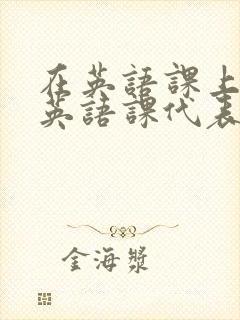 在英語課上
英語課代表
金海槳